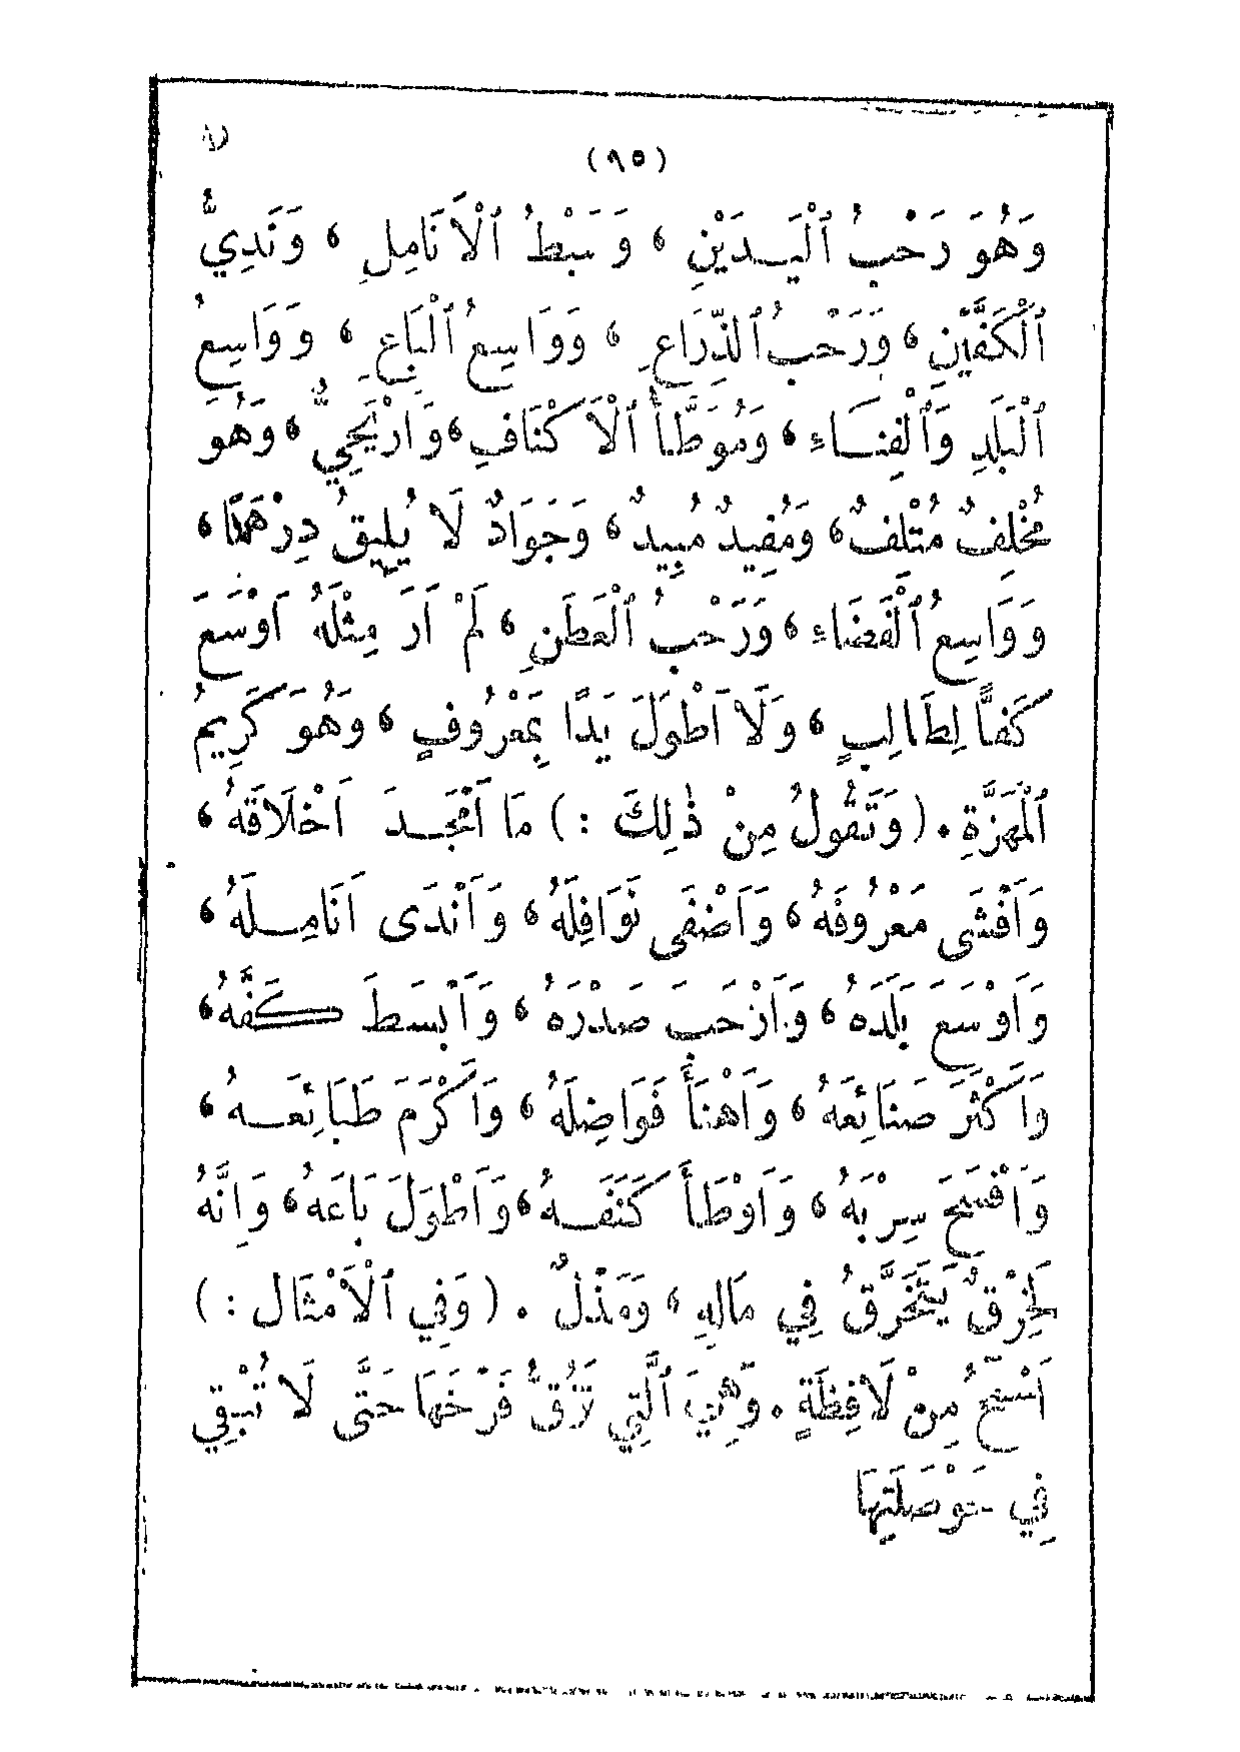 (٩٥)
وَهُوَ رَحْبُ ٱلْيَدَيْنِ ، وَسَبْطُ ٱلْأَنَامِلِ ، وَنَدِيُّ
ٱلْكَفَّيْنِ ، وَرَحْبُ ٱلذِّرَاعِ ، وَوَاسِعُ ٱلْبَاعِ ، وَوَاسِعُ
ٱلْبَلَدِ وَٱلْفِنَاءِ ، وَمُوَطَّأُ ٱلْاَكْنَافِ ، وَاَرْيَحِيٌّ ، وَهُوَ
مُخْلِفٌ مُتْلِفٌ ، وَمُفِيدٌ مُبِيدٌ ، وَجَوَادٌ لَا يُلِيقُ دِرْهَمًا ،
وَوَاسِعُ ٱلْفَضَاءِ ، وَرَحْبُ ٱلْعَطَنِ ، لَمْ اَرَ مِثْلَهُ اَوْسَعَ
كَفًّا لِطَالِبٍ ، وَلَا اَطْوَلَ يَدًا بِمَعْرُوفٍ ، وَهُوَ كَرِيمُ
ٱلْمَهَزَّةِ . (وَتَقُولُ مِنْ ذٰلِكَ :) مَا اَمْجَدَ اَخْلَاقَهُ ،
وَاَفْشَى مَعْرُوفَهُ ، وَاَضْفَى نَوَافِلَهُ ، وَاَنْدَى اَنَامِلَهُ ،
وَاَوْسَعَ بَلَدَهُ ، وَاَرْحَبَ صَدْرَهُ ، وَاَبْسَطَ كَفَّهُ ،
وَاَكْثَرَ صَنَائِعَهُ ، وَاَهْنَأَ فَوَاضِلَهُ ، وَاَكْرَمَ طَبَائِعَهُ ،
وَاَفْسَحَ سِرْبَهُ ، وَاَوْطَأَ كَنَفَهُ ، وَاَطْوَلَ بَاعَهُ ، وَاِنَّهُ
لَخِرْقٌ يَتَخَرَّقُ فِي مَالِهِ ، وَمَذْلٌ . (وَفِي ٱلْاَمْثَالِ :)
اَسْمَحُ مِنْ لَافِظَةٍ . وَهِيَ ٱلَّتِي تَزُقُّ فَرْخَهَا حَتَّى لَا تُبْقِي
فِي حَوْصَلَتِهَا